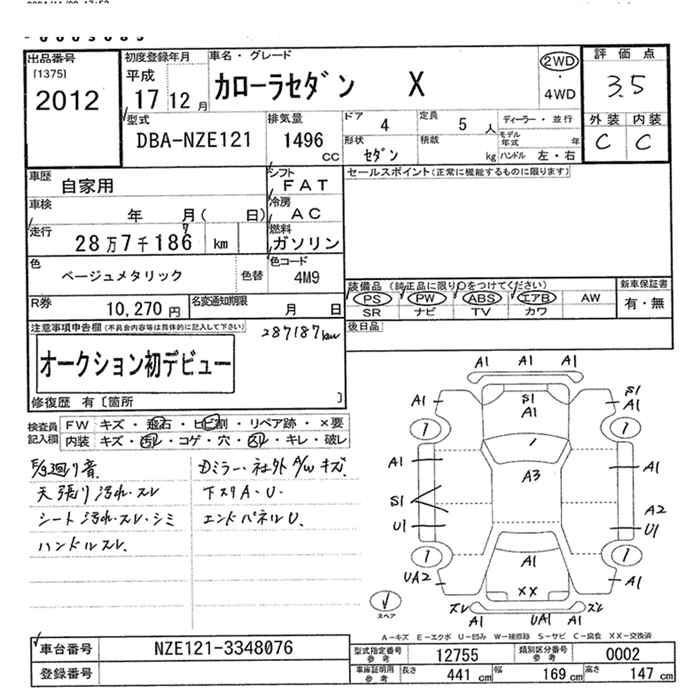 出品番号
[1375]
2012
初度登録年月
平成
17 12 月
車名・グレード
カローラセダン X
2WD
・
4WD
評価点
3.5
外装 内装
C C
型式
DBA-NZE121
排気量
1496
CC
ドア 4
定員 5 人
形状
セダン
積載
kg
ディーラー・並行
モデル
年式 年
ハンドル 左・右
車歴
自家用
シフト
FAT
車検
年 月( 日)
冷房
AC
走行
28万7千186 km
7
燃料
ガソリン
色
ベージュメタリック
色替
色コード
4M9
R券
10,270円
名変通知期限
月 日
セールスポイント(正常に機能するものに限ります)
装備品(純正品に限り○をつけてください)
PS PW ABS エアB AW
SR ナビ TV カワ
新車保証書
有・無
後日品
注意事項申告欄(不具合内容等は具体的に記入して下さい)
287187km
オークション初デビュー
修復歴 有〔箇所 〕
検査員
記入欄
FW キズ・飛石・ヒビ割・リペア跡・×要
内装 キズ・汚レ・コゲ・穴・スレ・キレ・破レ
天張り汚れ・スレ
シート汚れ・スレ・シミ
ハンドルスレ
Dミラー・社外A/Wキズ
下スリA・U・
エンドパネルU.
A1 A1 A1
A1 S1 A1 S1 A1
1 1
A1 A3 A1
S1 A2
U1 U1
1 A1 1
UA2 XX A1
スレ A1 UA1 スレ
スペア
A－キズ E－エクボ U－凹み W－補修跡 S－サビ C－腐食 XX－交換済
車台番号
NZE121-3348076
登録番号
型式指定番号
参考
12755
類別区分番号
参考
0002
車庫証明用
参考
長さ 441 cm 幅 169 cm 高さ 147 cm